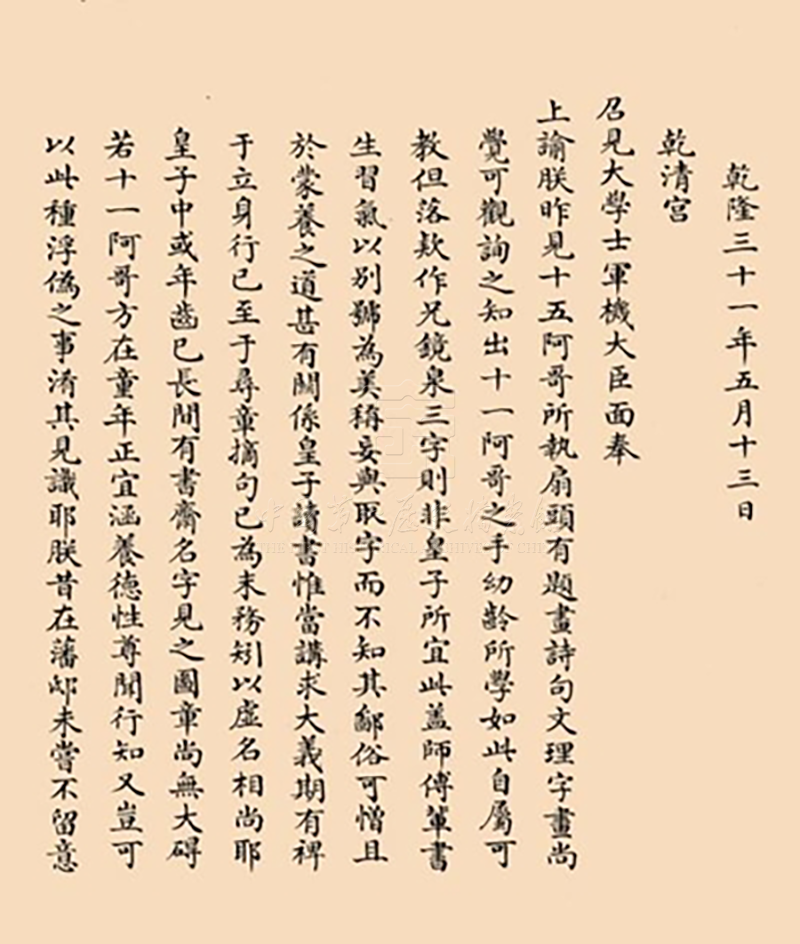 乾隆三十一年五月十三日
乾清宮
召見大學士軍機大臣面奉
上諭朕昨見十五阿哥所執扇頭有題畫詩句文理字畫尚
覺可觀詢之知出十一阿哥之手幼齡所學如此自屬可
教但落欵作兄鏡泉三字則非皇子所宜此盖師傅軰書
生習氣以别號為美稱妄與取字而不知其鄙俗可憎且
於蒙養之道甚有關係皇子讀書惟當講求大義期有裨
于立身行已至于尋章摘句已為末務矧以虛名相尚耶
皇子中或年齒已長間有書齋名字見之圖章尚無大碍
若十一阿哥方在童年正宜涵養德性尊聞行知又豈可
以此種浮僞之事淆其見識耶朕昔在藩邸未嘗不留意